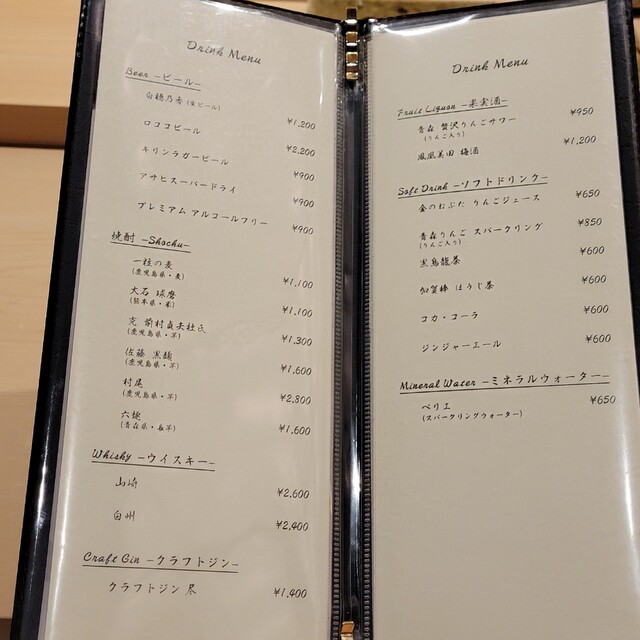 Drink Menu
Beer -ビール-
白穂乃香 (生ビール)
¥1,200
ロココビール
¥2,200
キリンラガービール
¥900
アサヒスーパードライ
¥900
プレミアム アルコールフリー
¥900
焼酎 -Shochu-
一粒の麦
(鹿児島県・麦)
¥1,100
大石 球磨
(熊本県・米)
¥1,100
克 前村貞夫杜氏
(鹿児島県・芋)
¥1,300
佐藤 黒麹
(鹿児島県・芋)
¥1,600
村尾
(鹿児島県・芋)
¥2,800
六趣
(青森県・長芋)
¥1,600
Whisky -ウイスキー-
山崎
¥2,600
白州
¥2,400
Craft Gin -クラフトジン-
クラフトジン
¥1,400
Drink Menu
Fruit Liquor -果実酒-
青森 贅沢りんごサワー
(りんご入り)
¥950
鳳凰美田 梅酒
¥1,200
Soft Drink -ソフトドリンク-
金のねぶた りんごジュース
¥650
青森りんご スパークリング
(りんご入り)
¥850
黒烏龍茶
¥600
加賀棒 ほうじ茶
¥600
コカ・コーラ
¥600
ジンジャーエール
¥600
Mineral Water -ミネラルウォーター-
ペリエ
(スパークリングウォーター)
¥650